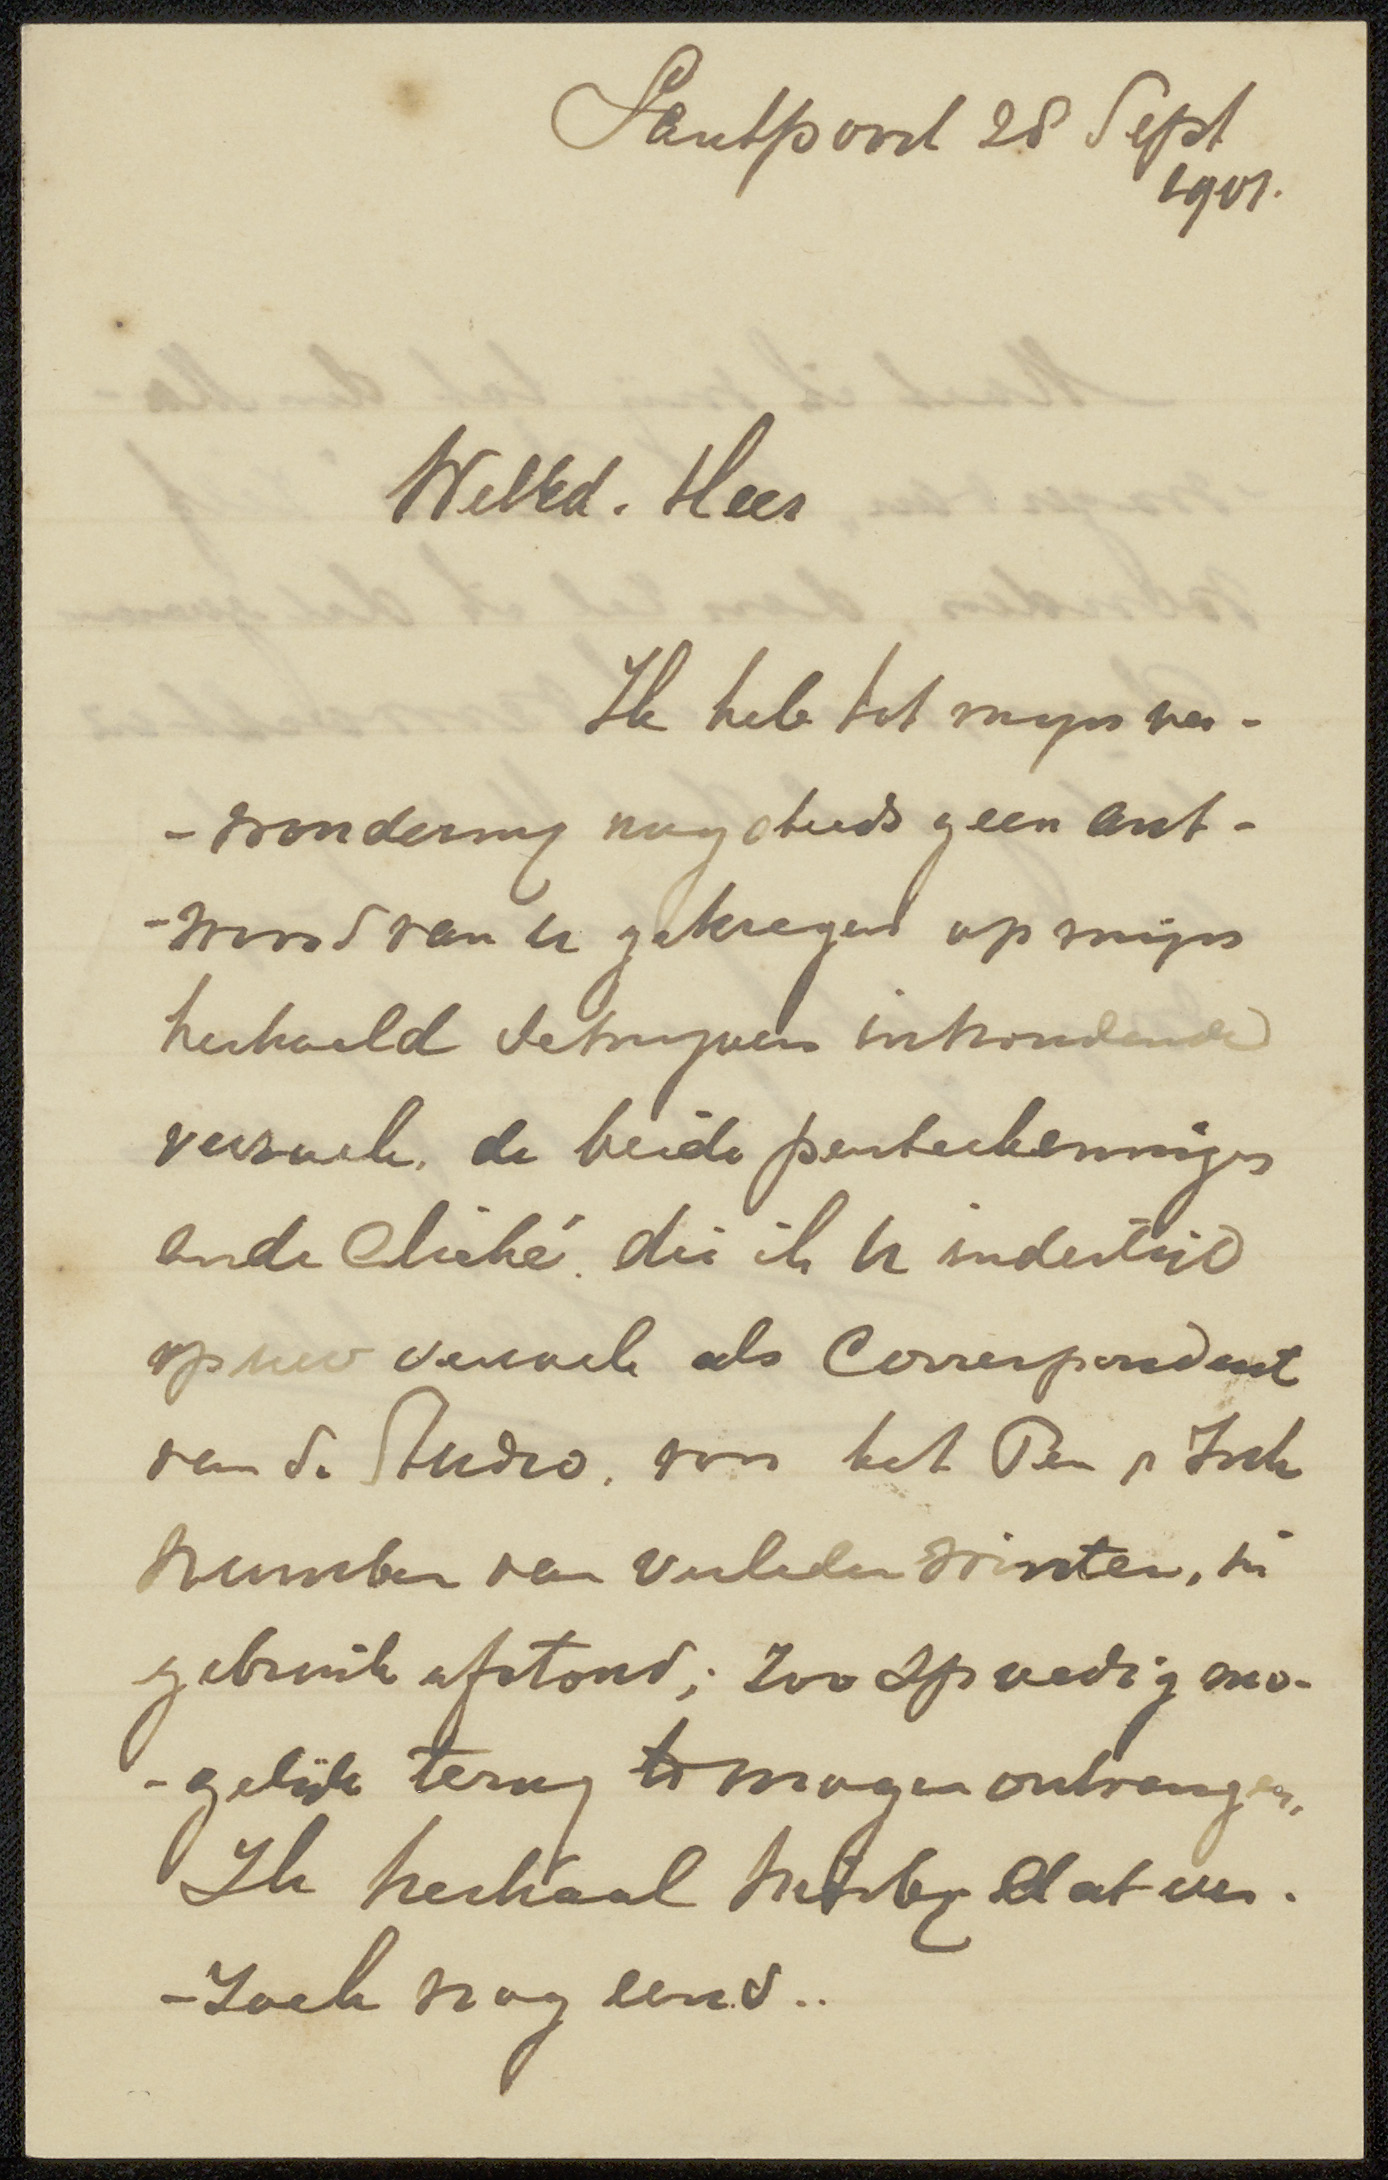 Santpoort 28 Sept
1901.
WelEd. Heer
Ik heb tot mijn ver-
-wondering nog steeds geen ant-
-woord van U gekregen op mijn
herhaald schrijven inhoudende
verzoek, de beide penteekeningen
en de cliché, die ik U indertijd
op uw verzoek als Correspondent
van de Studio, voor het Pen & Ink
Number van verleden winter, in
gebruik afstond; zoo spoedig mo-
-gelijk terug te mogen ontvangen.
Ik herhaal hierbij dat ver-
-zoek nog eens..